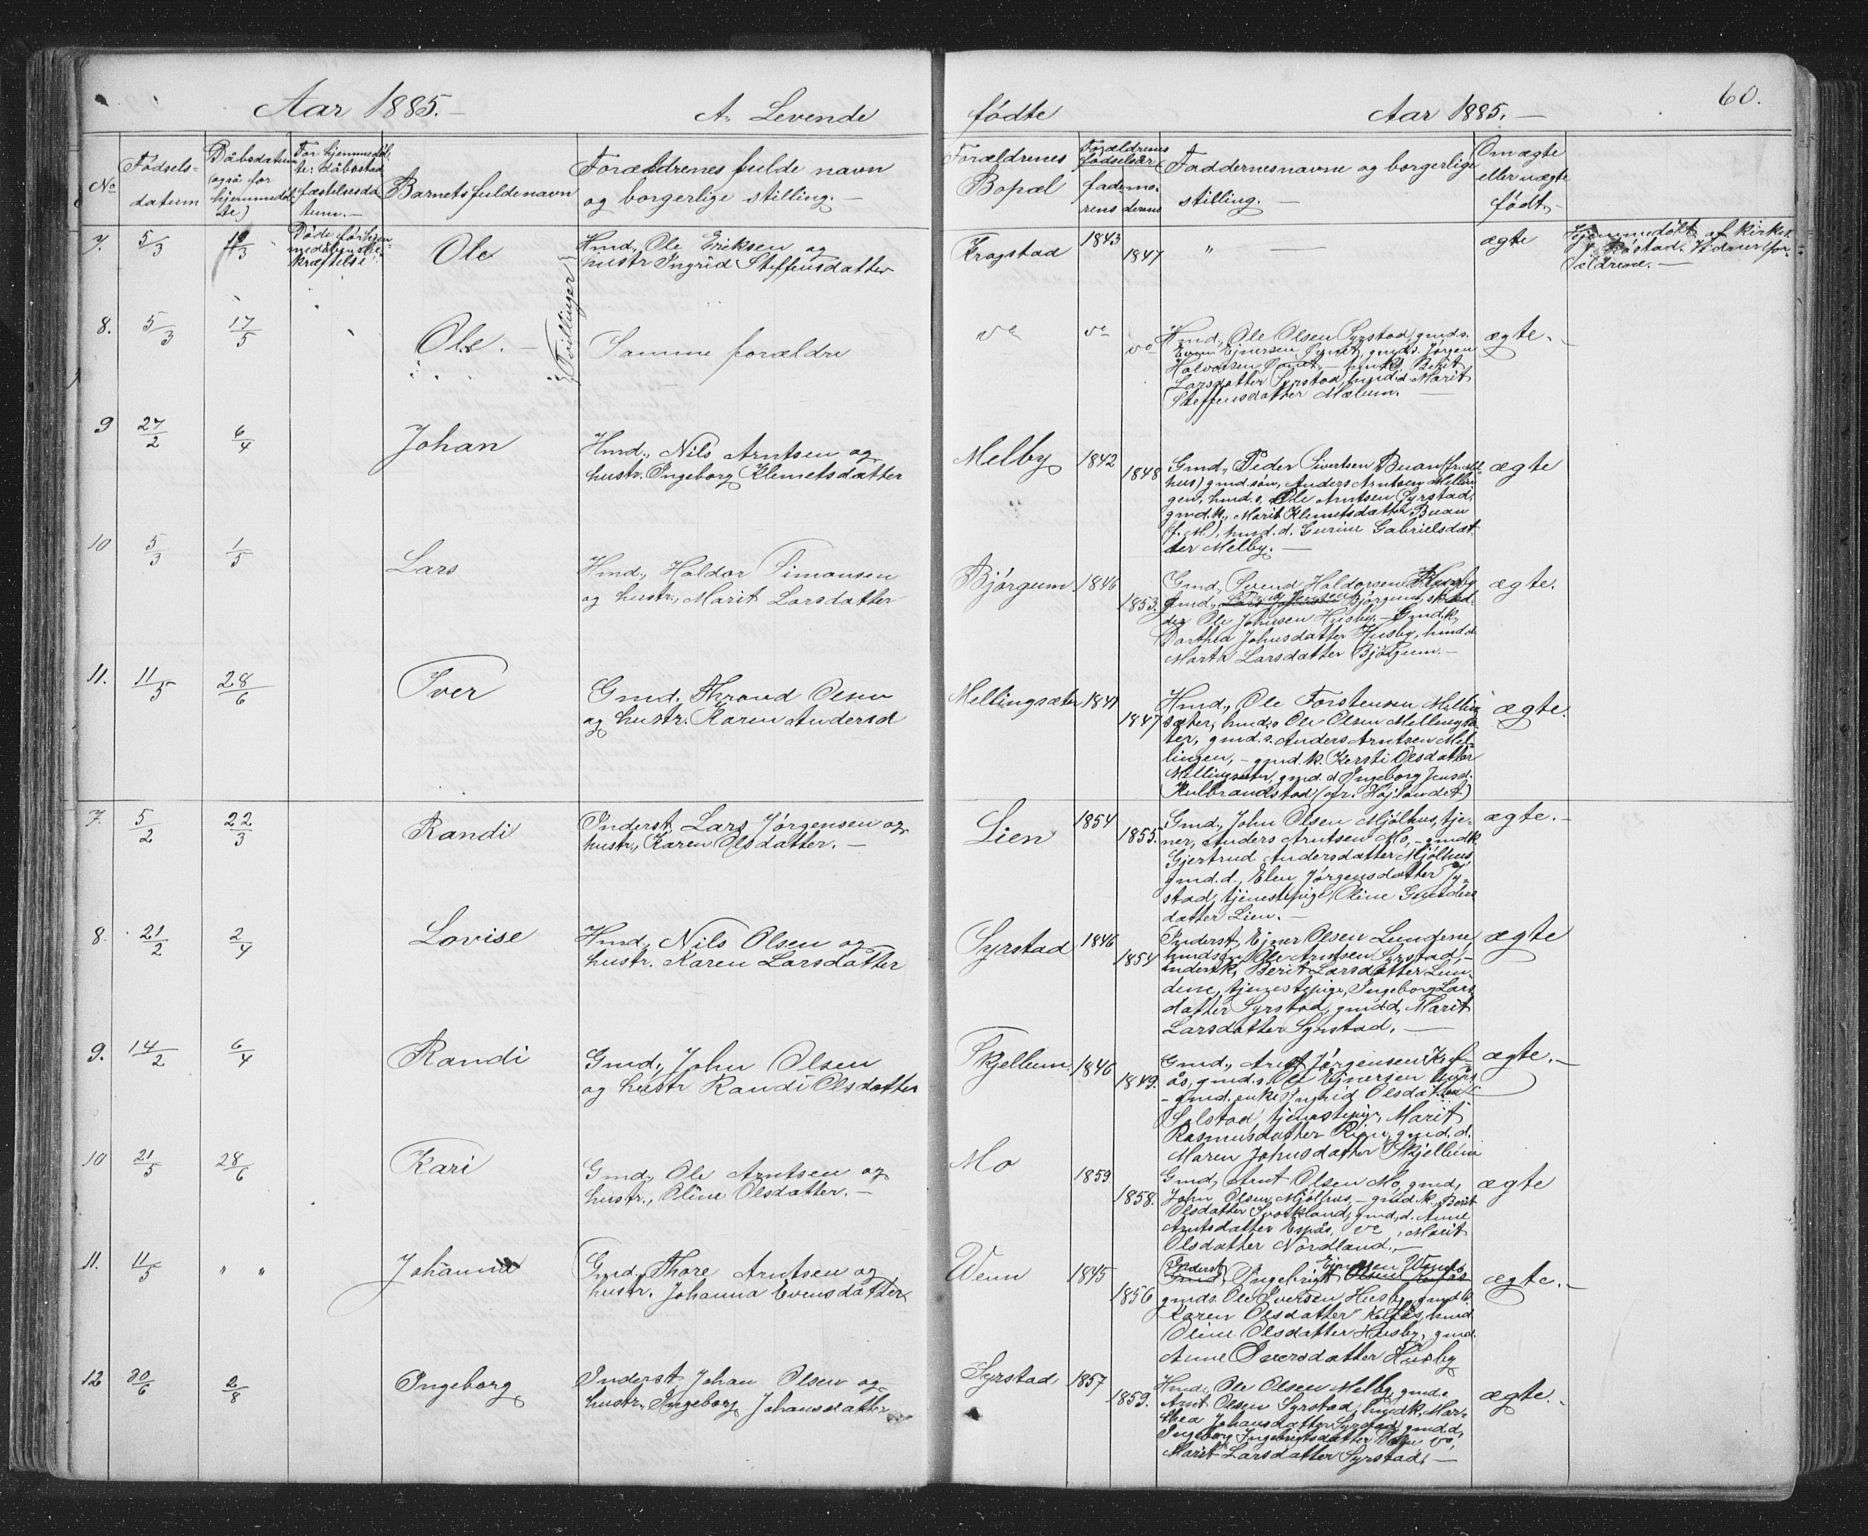 60.
Aar 1885.—
A. Levende
fødte
Aar 1885.—
No
Fødsels-
datum
Daabsdatum
(også for
hjemmedøb-
te)
For hjemmedøb-
te: Dåbsstad-
fæstelsesda-
tum.—
Barnets fulde navn
Forældrenes fulde navn
og borgerlige stilling.—
Forældrenes
Bopæl
Forældrenes
fødselsår
faderens
moderens
Faddernes navne og borgerlige
stilling.—
Om ægte
eller uægte
født.—
7.
5/3
Døde før
Ole
Hmd., Ole Eriksen og
hustr Ingrid Steffensdatter
Tvillinger
Kragstad
1843
1847
"
—
ægte
Hjemmedøbt af kirkes.
8.
5/3
17/5
Ole.—
Samme forældre
do
do
do
Hmd., Ole Olsen Syrstad, gmd.s.
Halvorsen
Larsdatter Syrstad, gmd.d. Marit
Steffensdatter Mælum.—
ægte.—
9
27/2
6/4
Johan
Hmd., Nils Arntsen og
hustr. Ingeborg Klemetsdatter
Melby
1842
1848
Gmd., Peder Sivertsen Buan (fr. Mel-
hus) gmd.søn, Anders Arntsen Mellin-
gen, hmd.s, Ole Arntsen Syrstad,
gmd.k., Marit Klemetsdatter Buan
(f. M.), hmd.d. Gurine Gabrielsdat-
ter Melby.—
ægte
10
5/3
1/5
Lars
Hmd., Haldor Simonsen
og hustr., Marit Larsdatter
Bjørgum
1846
1853.
Gmd, Svend Haldorsen Husby
gmd., Bjørgum, skræd-
der Ole Johnsen Husby,— Gmdk,
Dorthea Johnsdatter Husby, hmd.d.
Marta Larsdatter Bjørgum.—
ægte.
11.
11/5
28/6
Iver
Gmd., Thrond Olsen
og hustr. Karen Andersd
Mellingsæter
1841
1847
Hmd., Ole Torstensen Melling
sæter, hmd.s Ole Olsen Mellingsæ-
ter, gmd.s. Anders Arntsen Mel-
lingen,— gmd.k. Kersti Olsdatter
Mellingsæter, gmd.d. Ingeborg Jensd.
Kulbrandstad (fr. Højlandet)
ægte.
7.
5/2
22/3
Randi
Inderst Lars Jørgensen og
hustr., Karen Olsdatter.—
Lien
1854
1855.
Gmd, John Olsen Mjølhus, tje-
ner, Anders Arntsen Mo,— gmdk
Gjertrud Andersdatter Mjølhus,
gmd.d., Elen Jørgensdatter Sy-
stad, tjenestepige, Oline
datter Lien.—
ægte.—
8.
21/2
2/4
Lovise
Hmd., Nils Olsen og
hustr. Karen Larsdatter
Syrstad
1846
1854
Inderst, Ejner Olsen Lundene,
hmdsøn Ole Arntsen Syrstad,—
inderstk., Berit Larsdatter Lun-
dene, tjenestepige, Ingeborg Lars-
datter Syrstad, gmdd, Marit
Larsdatter Syrstad.—
ægte
9.
14/2
6/4
Randi
Gmd., John Olsen
og hustr Randi Olsdatter
Skjellum.
1846
1849.
Gmd., Arnt Jørgensen Kref-
ås, gmd.s. Ole Ejnersen
— gmd. enke Ingrid Olsdatter
Solstad, tjenestepige, Marit
Rasmusdatter gmd.d.
Maren Johnsdatter Skjellum
ægte.—
10
21/5
28/6
Kari
Gmd., Ole Arntsen og
hustr., Oline Olsdatter.—
Mo
1859
1858.
Gmd, Arnt Olsen Mo, gmd,
John Olsen Mjølhus,— gmd.k. Berit
Olsdatter Svorkland, gmd.d. Anne
Arntsdatter Espås, do, Marit
Olsdatter Nordland.—
ægte
11.
11/5
" "
Johanna
Gmd, Thore Arntsen og
hustr. Johanna Evensdatter
Wenn
1845
1856
Inderst, Ingebrigt Ejnersen
gmds. Ole Iversen Husby, gmd.k.
Karen Olsdatter Kelfås, hmd
Oline Olsdatter Husby, gmd.
Anne Iversdatter Husby
ægte.—
12
30/6
2/8
Ingeborg
Inderst, Johan Olsen og
hustr. Ingeborg Johansdatter
Syrstad
1857
1859.
Hmd., Ole Olsen Melby, gmd.s
Arnt Olsen Syrstad, hmdk, Mar-
thea Johansdatter Syrstad, gmd.d,
Ingeborg Ingebrigtsdatter do,
Marit Larsdatter Syrstad.—
ægte.—